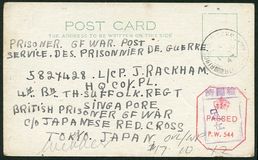 POST CARD
THE ADDRESS TO BE WRITTEN ON THIS SIDE
PRISONER OF WAR POST
SERVICE. DES. PRISONNIER DE. GUERRE.
5824428. L/CPL J. RACKHAM.
HQ COY. PL
4TH. BTN. SUFFOLK. REGT
SINGAPORE
BRITISH PRISONER OF WAR
C/O JAPANESE RED CROSS
TOKYO. JAPAN
17. 10. 42
PASSED
P.W. 544